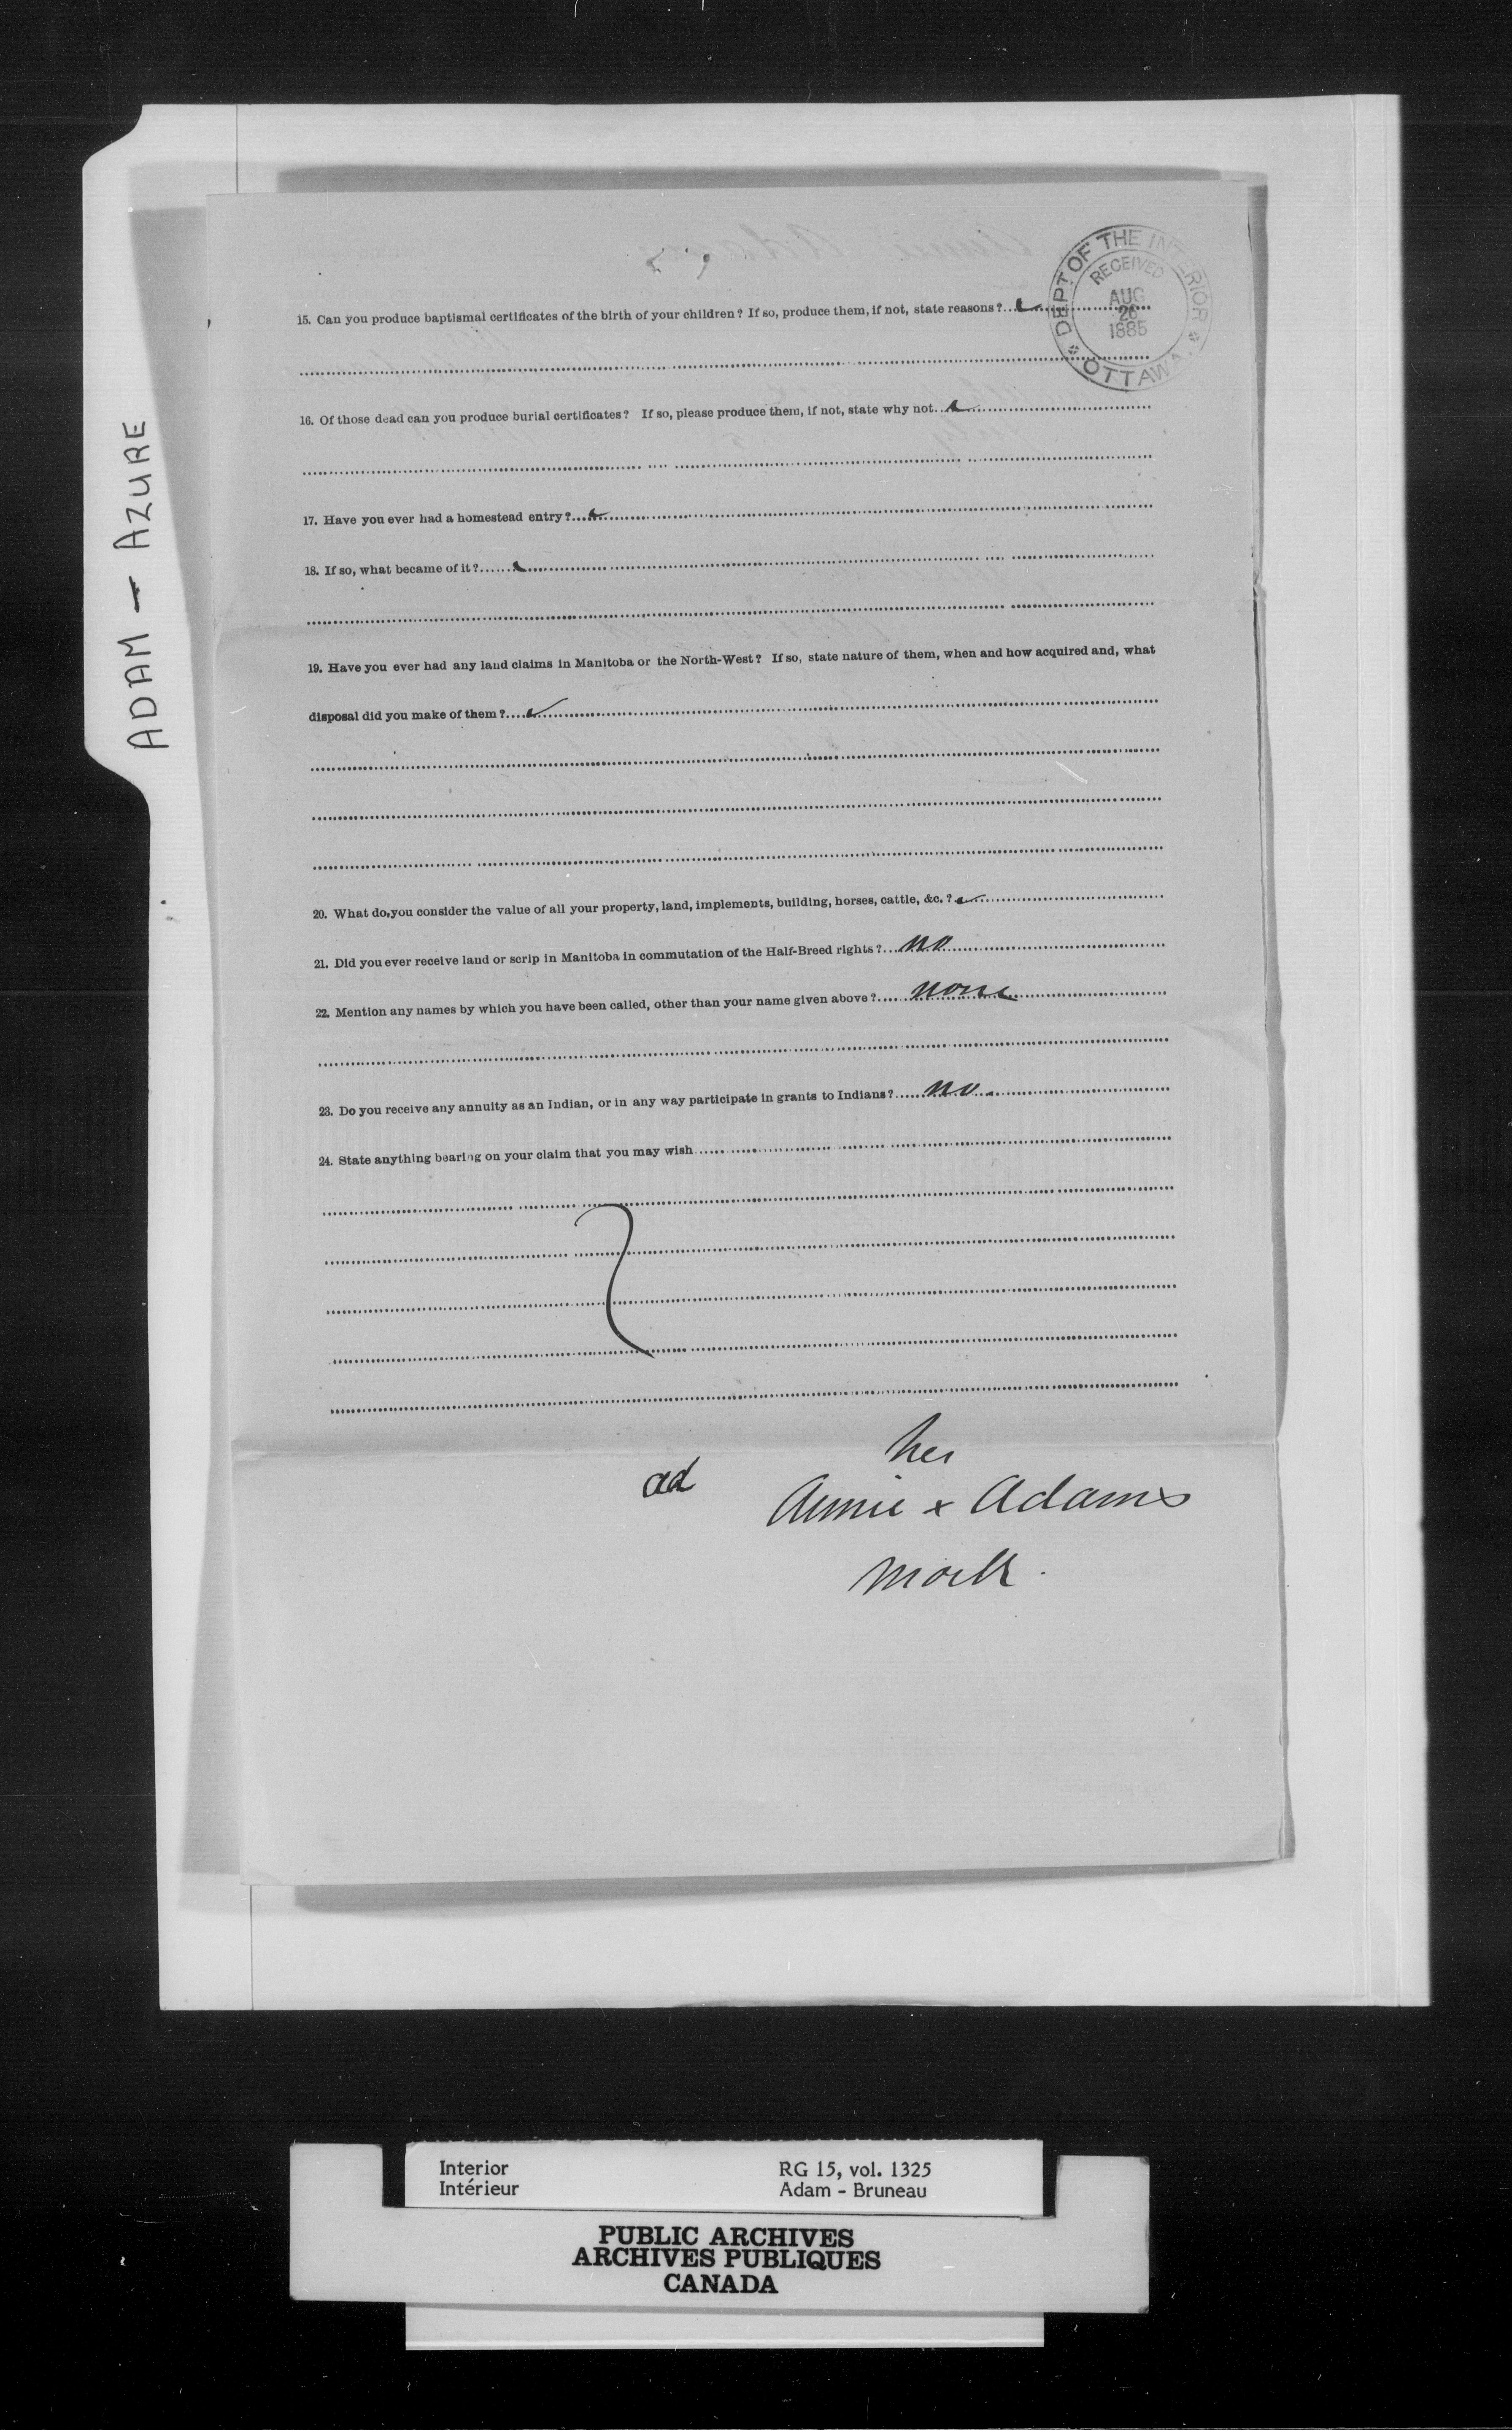 DEPT OF THE INTERIOR
RECEIVED
AUG
26
1885
OTTAWA.
ADAM — AZURE
15. Can you produce baptismal certificates of the birth of your children? If so, produce them, if not, state reasons?
16. Of those dead can you produce burial certificates? If so, please produce them, if not, state why not
17. Have you ever had a homestead entry?
18. If so, what became of it?
19. Have you ever had any land claims in Manitoba or the North-West? If so, state nature of them, when and how acquired and, what
disposal did you make of them?
20. What do you consider the value of all your property, land, implements, building, horses, cattle, &c.?
21. Did you ever receive land or scrip in Manitoba in commutation of the Half-Breed rights? no
22. Mention any names by which you have been called, other than your name given above? none
23. Do you receive any annuity as an Indian, or in any way participate in grants to Indians? no.
24. State anything bearing on your claim that you may wish
her
ad Annie x Adams
mark.
Interior RG 15, vol. 1325
Intérieur Adam - Bruneau
PUBLIC ARCHIVES
ARCHIVES PUBLIQUES
CANADA